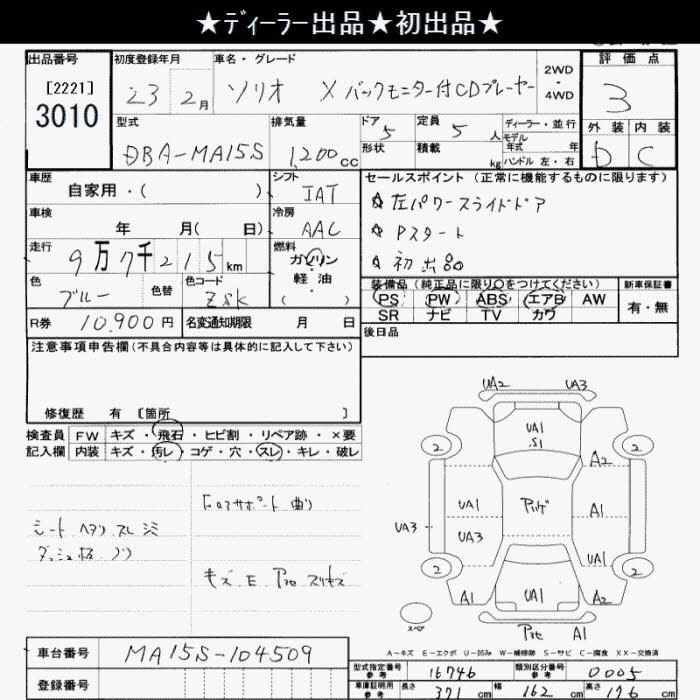 ★ディーラー出品★初出品★
出品番号 初度登録年月 車名・グレード 2WD・4WD 評価点
[2221]
3010
23 2月 ソリオ X バックモニター付CDプレーヤー 3
型式 排気量 ドア 5 定員 5人 ディーラー・並行 外装 内装
DBA-MA15S 1,200cc 形状 積載 kg モデル年式 年 D C
ハンドル 左・右
車歴 シフト セールスポイント (正常に機能するものに限ります)
自家用・( ) IAT ☆左パワースライドドア
車検 冷房 ☆Pスタート
年 月( 日) AAC ☆初出品
走行 9万7千215km 燃料 ガソリン・軽油・( )
色 色替 色コード 装備品 (純正品に限り○をつけてください) 新車保証書
ブルー ZSK PS PW ABS エアB AW 有・無
SR ナビ TV カワ
R券 10,900円 名変通知期限 月 日 後日品
注意事項申告欄(不具合内容等は具体的に記入して下さい)
修復歴 有 [箇所 ]
検査員 FW キズ・飛石・ヒビ割・リペア跡・×要
記入欄 内装 キズ・汚レ・コゲ・穴・スレ・キレ・破レ
シート ヘタリ スレ シミ
コアサポート 曲り
キズ E
UA2 UA3
UA1
S1
2 2
A2
UA1 A1
UA3 UA3
UA1
2 2
A1 UA1 A2
スペア
A1
A-キズ E-エクボ U-凹み W-補修跡 S-サビ C-腐食 XX-交換済
車台番号 MA15S-104509
登録番号
型式指定番号 参考 16746 類別区分番号 参考 0005
車庫証明用 参考 長さ 371cm 幅 162cm 高さ 176cm